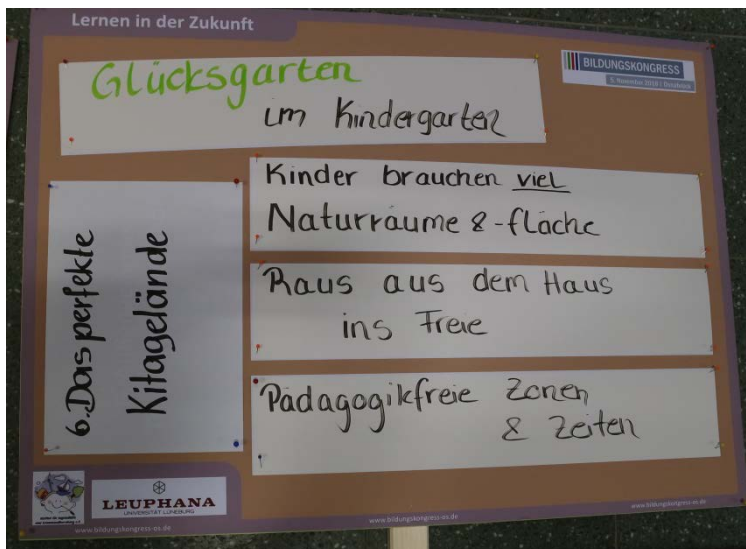 Lernen in der Zukunft
BILDUNGSKONGRESS
Glücksgarten
im Kindergarten
6. Das perfekte
Kitagelände
Kinder brauchen viel
Naturräume & -fläche
Raus aus dem Haus
ins Freie
Pädagogikfreie Zonen
& Zeiten
LEUPHANA
UNIVERSITÄT LÜNEBURG
www.bildungskongress-os.de
www.bildungskongress-os.de
www.bildungskongress-os.de